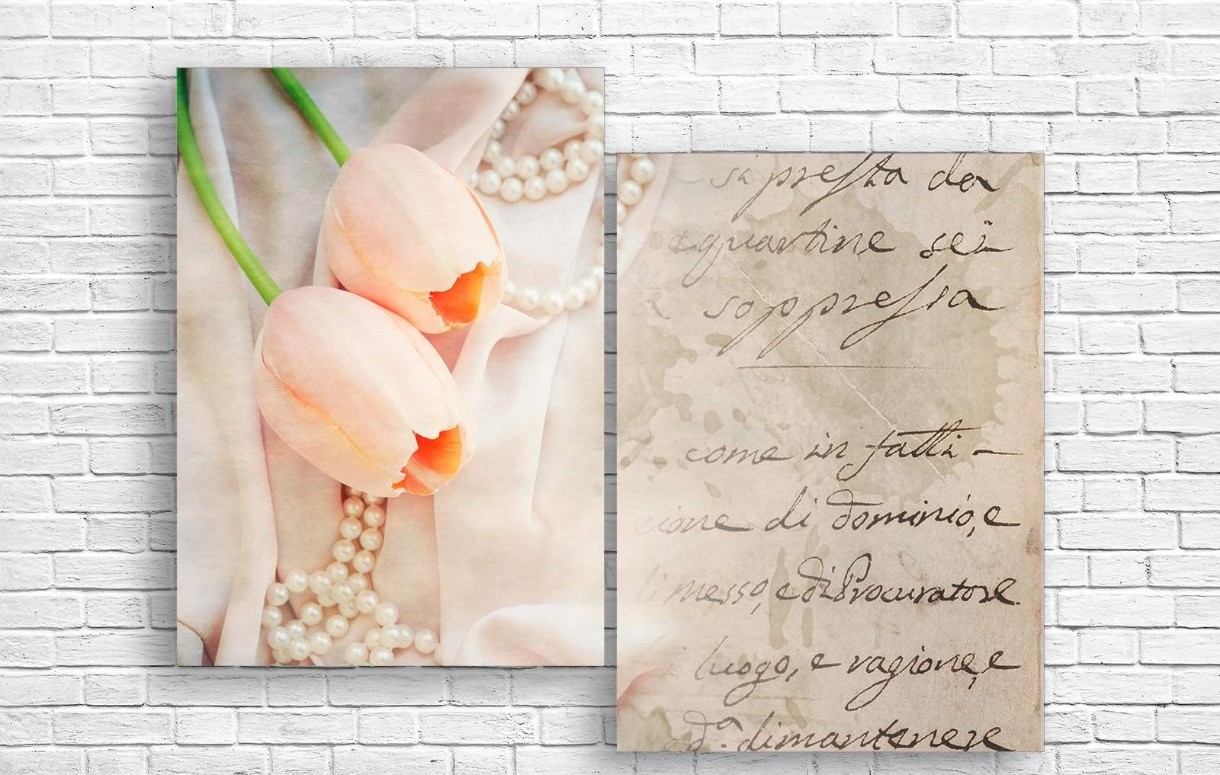 si pressta da
quartine sei
soppressa
come in fatti -
ione di dominio, e
li messo, e di Procuratore
luogo, e ragione, e
d.ª dimantenere